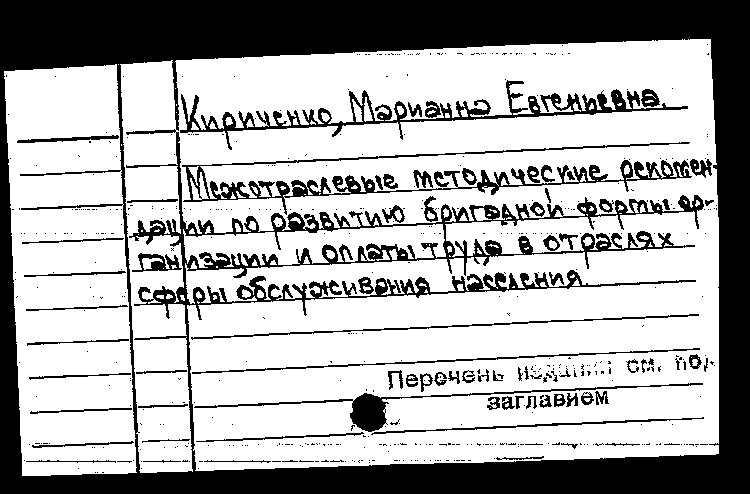 Кириченко, Марианна Евгеньевна.
Межотраслевые методические рекомен-
дации по развитию бригадной формы ор-
ганизации и оплаты труда в отраслях
сферы обслуживания населения.
Перечень изданий см. под
заглавием